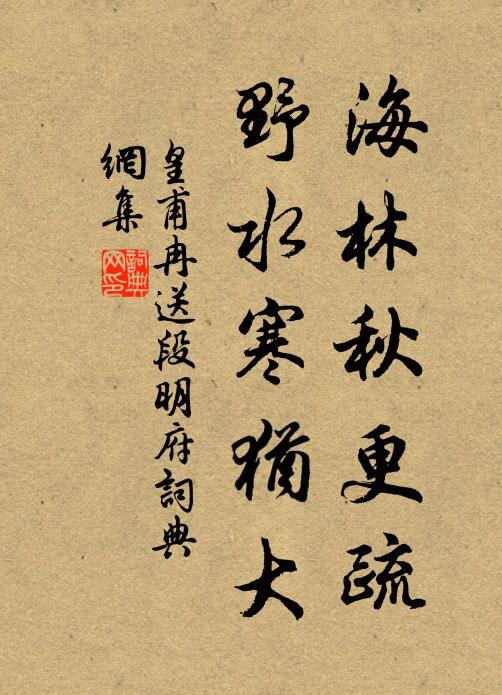 海林秋更疏
野水寒猶大
皇甫冉送段明府詞典
網集
詞典
网印